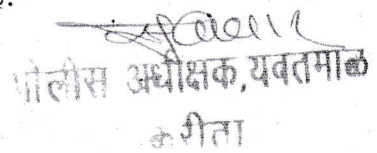 पोलीस अधीक्षक, यवतमाळ
करीता